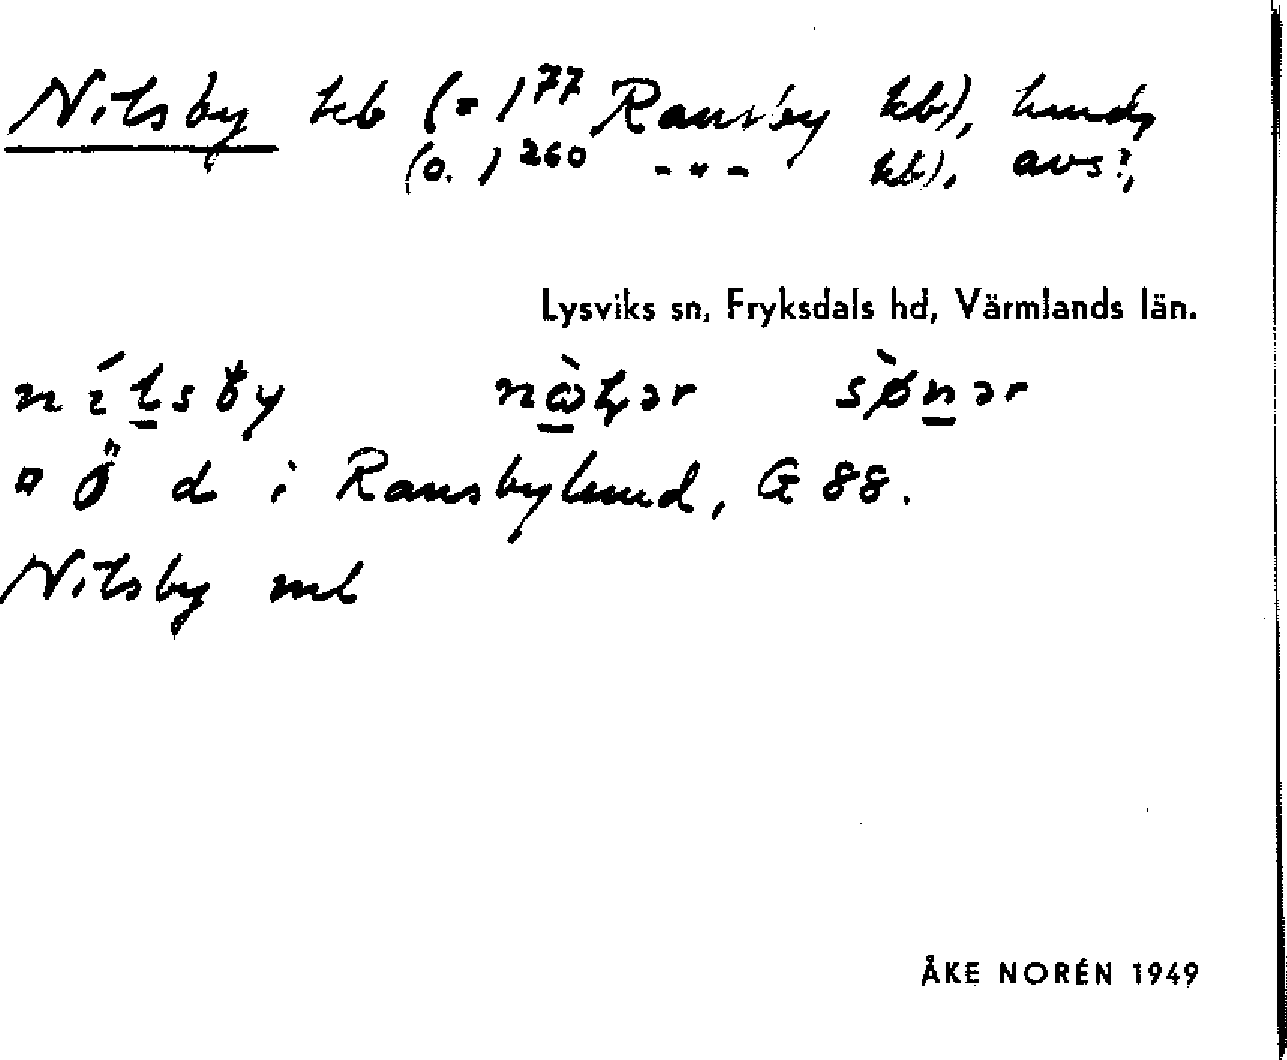 Nilsby kb (= 1⁷⁷ Ransby kb), lund,
(o. 1²⁶⁰ - " - kb), avs?,
Lysviks sn, Fryksdals hd, Värmlands län.
¤ Ö d i Ransbylund, G 88.
Nilsby ml
ÅKE NORÉN 1949